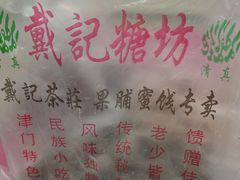 戴記糖坊
清真
戴記茶莊 果脯蜜饯专卖
津门特色
民族小吃
风味独
传统秘
老少皆
馈赠佳